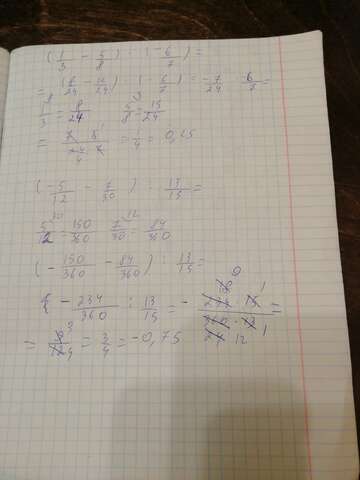 (1/3 - 5/8) · (-6/7) =
= (8/24 - 15/24) · (-6/7) = -7/24 · 6/7 =
1/3 = 8/24 5/8 = 15/24
= 1/4 = 0,25
(-5/12 - 7/30) : 13/15 =
5/12 = 150/360 7/30 = 84/360
(-150/360 - 84/360) : 13/15 =
- 234/360 : 13/15 = -
= 3/4 = -0,75